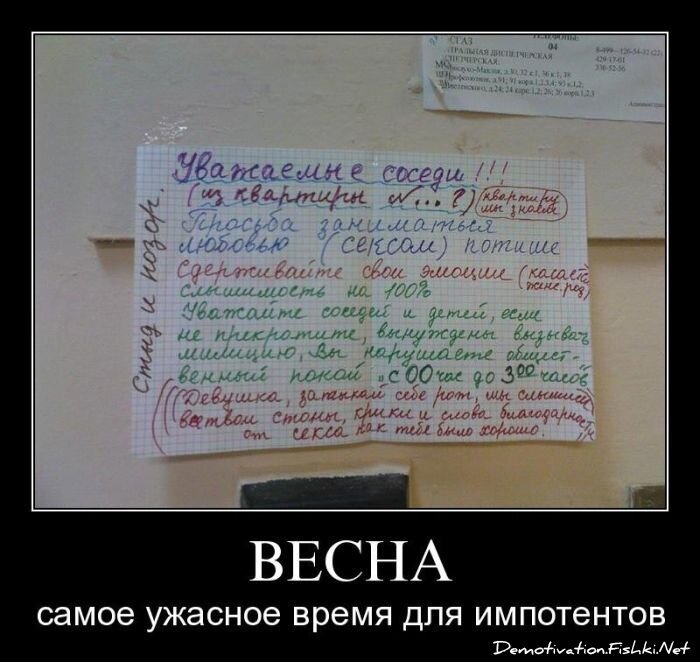 СГАЗ
ТЕЛЕФОНЫ
04
ТРАЛЬНАЯ ДИСПЕТЧЕРСКАЯ
ПЕТЧЕРСКАЯ:
429-17-61
330-52-56
Уважаемые соседи !!!
(из квартиры №...?) (квартиру мы знаем)
Просьба заниматься
любовью (сексом) потише
Сдерживайте свои эмоции (касается женс. род)
слышимость на 100%
Уважайте соседей и детей, если
не прекратите, вынуждены вызывать
милицию, Вы нарушаете общест-
венный покой "с 00 час до 3 00 часов"
(Девушка, затыкай себе рот, мы слышим
все твои стоны, крики и слова благодарности
от секса как тебе было хорошо.
Стыд и позор.
ВЕСНА
самое ужасное время для импотентов
Demotivation.Fishki.Net